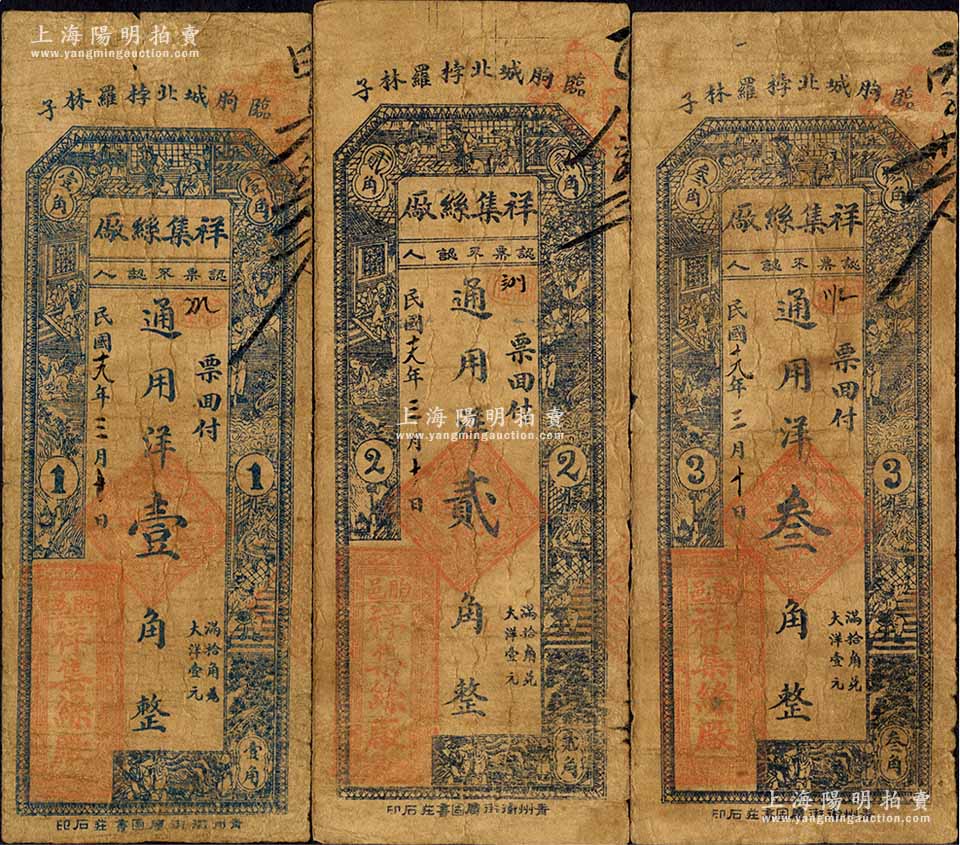 上海陽明拍賣
www.yangmingauction.com
臨朐城北桲羅林子
壹角
壹角
祥集絲廠
認票不認人
票面付
通用洋壹角整
民國十九年三月十日
滿拾角兑
大洋壹元
1
1
朐邑
祥集絲廠
壹角
青州衛街廣固書莊石印
臨朐城北桲羅林子
貳角
角
祥集絲廠
認票不認人
票面付
通用洋貳角整
民國十九年三月十日
滿拾角兑
大洋壹元
2
2
朐邑
祥集絲廠
貳角
青州衛街廣固書莊石印
上海陽明拍賣
www.yangmingauction.com
上海陽明拍賣
www.yangmingauction.com
臨朐城北桲羅林子
叁角
角
祥集絲廠
認票不認人
票面付
通用洋叁角整
民國十九年三月十日
滿拾角兑
大洋壹元
3
3
朐邑
祥集絲廠
叁角
州衛街廣固書莊石印
上海陽明拍賣
www.yangmingauction.com